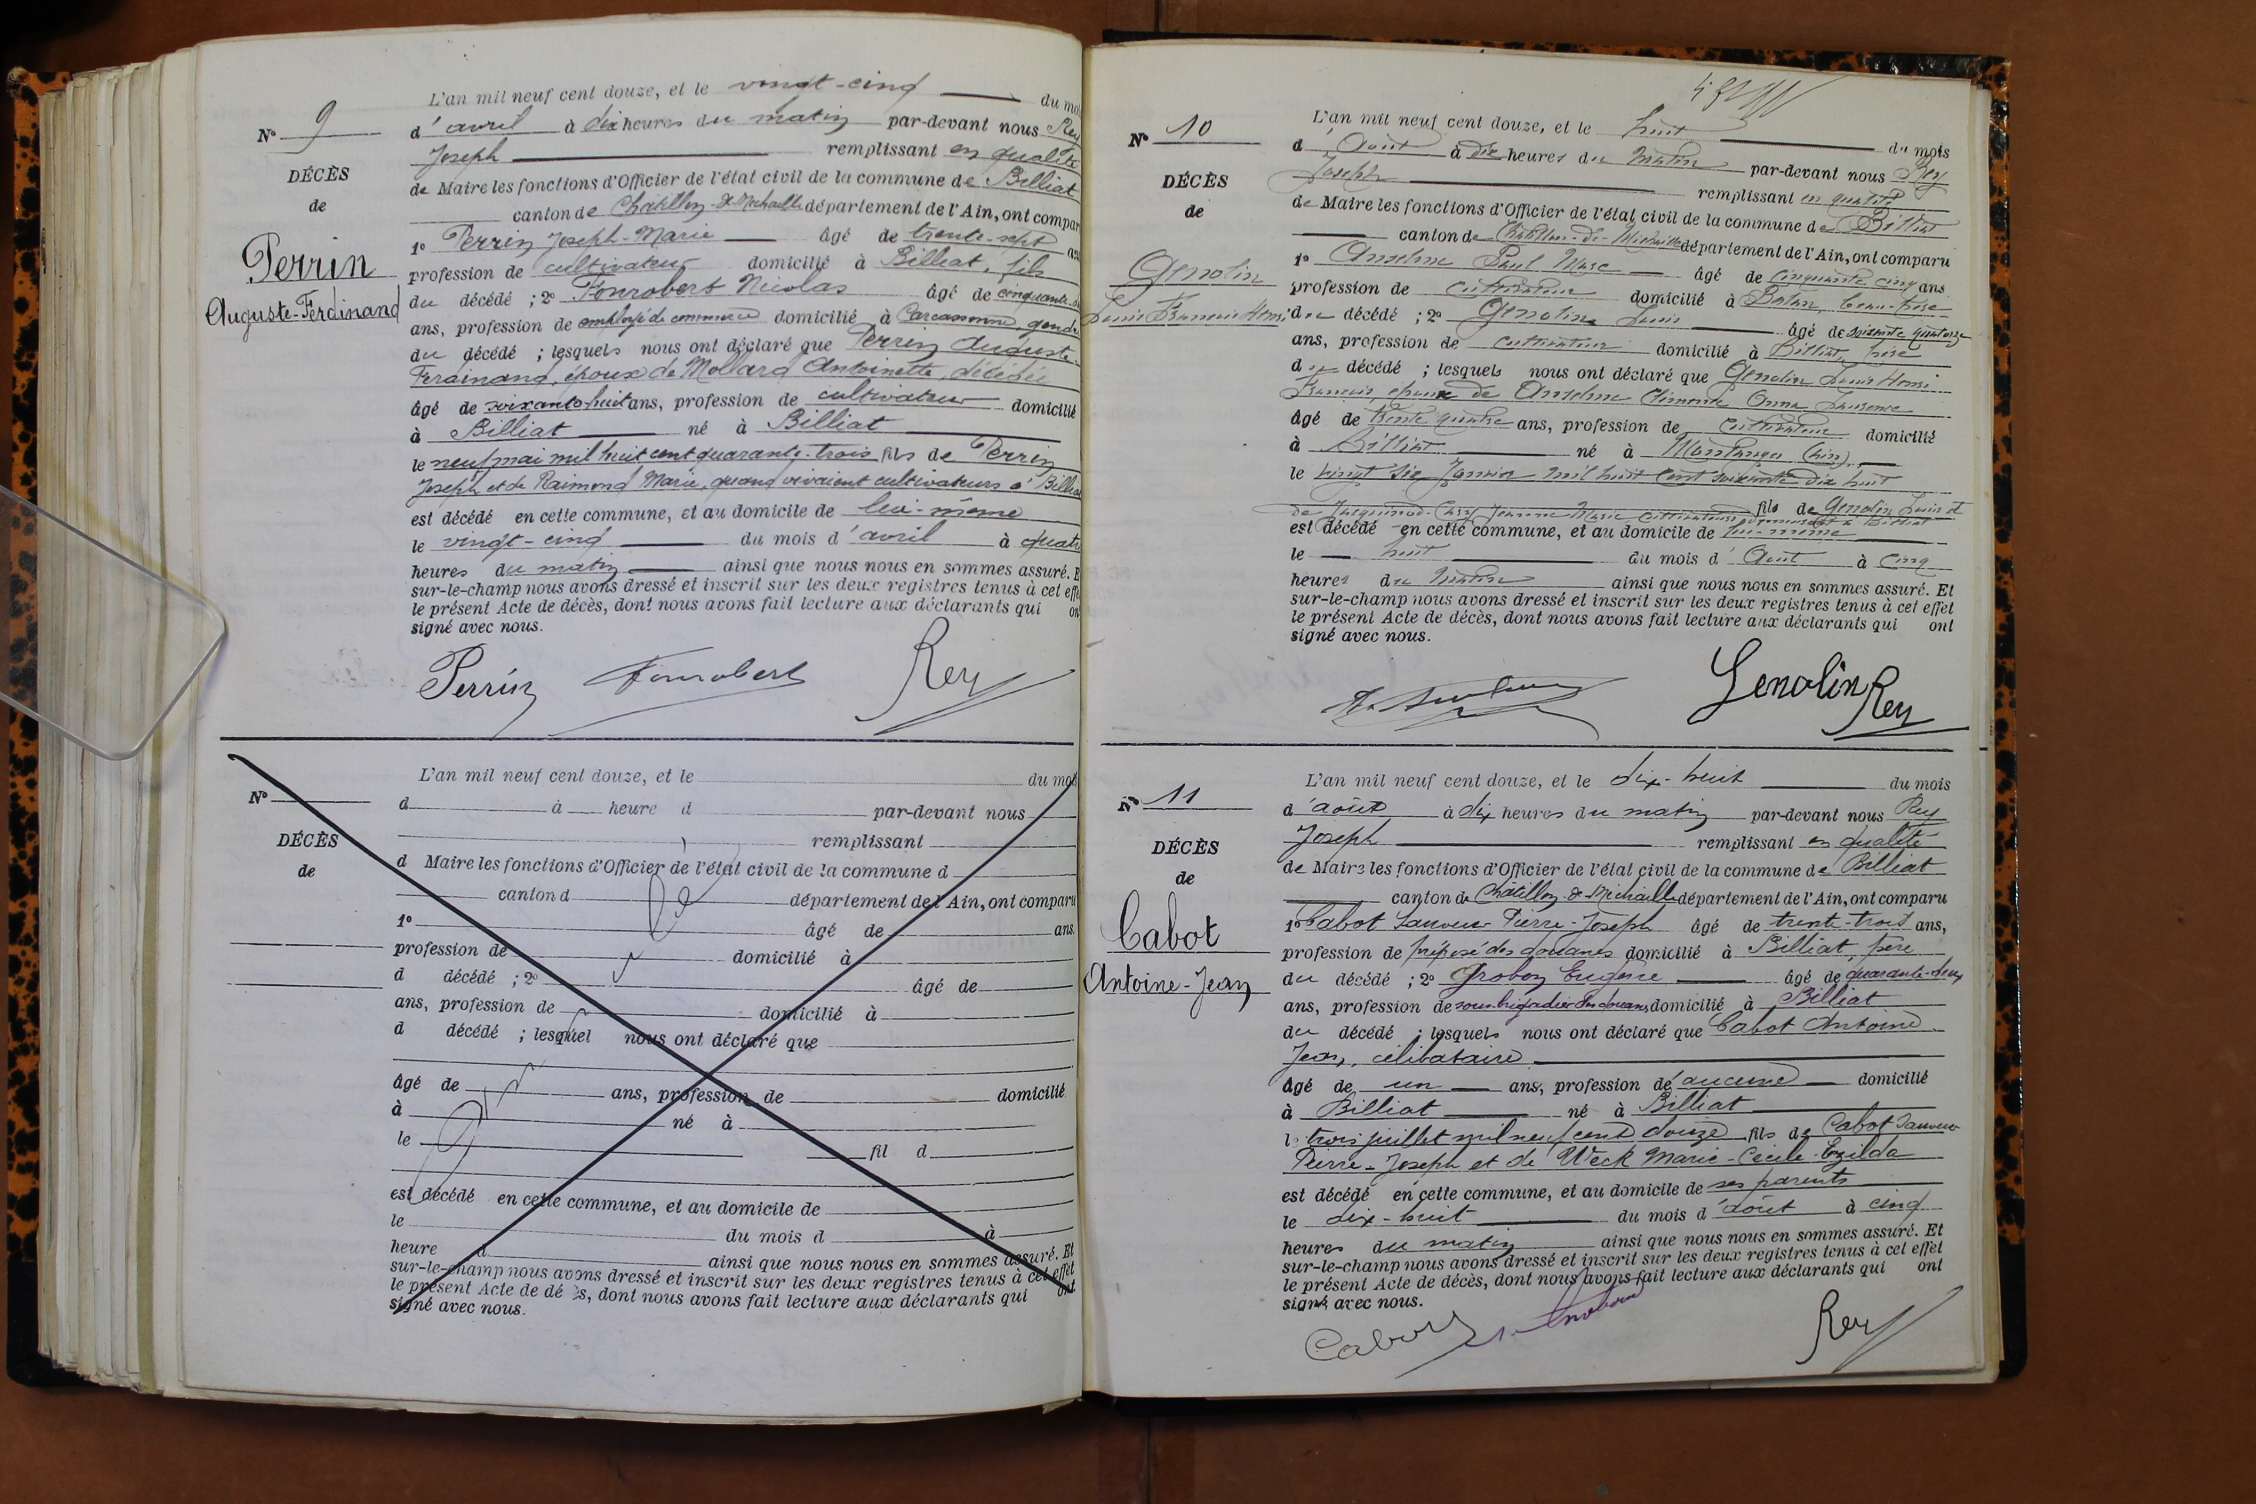 L'an mil neuf cent douze, et le vingt-cinq du mois
Nº 9
d'avril à dix heures du matin par-devant nous Rey
Joseph remplissant en qualité
DÉCÈS
de Maire les fonctions d'Officier de l'état civil de la commune de Billiat
de
canton de Chatillon-de-Michaille département de l'Ain, ont compar
Perrin
Auguste-Ferdinand
1º Perrin Joseph-Marie âgé de trente-sept ans
profession de cultivateur domicilié à Billiat, fils
du décédé ; 2º Fonrobert Nicolas âgé de cinquante
ans, profession de employé de commerce domicilié à Carcassonne, gendre
du décédé ; lesquels nous ont déclaré que Perrin Auguste
Ferdinand, époux de Mollard Antoinette, décédée
âgé de soixante huit ans, profession de cultivateur domicilié
à Billiat né à Billiat
le neuf mai mil huit cent quarante-trois fils de Perrin
Joseph et de Raimond Marie, quand vivaient cultivateurs à Billiat
est décédé en cette commune, et au domicile de lui-même
le vingt-cinq du mois d'avril à quatre
heures du matin ainsi que nous nous en sommes assuré. E
sur-le-champ nous avons dressé et inscrit sur les deux registres tenus à cet effe
le présent Acte de décès, dont nous avons fait lecture aux déclarants qui on
signé avec nous.
Perrin Fonrobert Rey
L'an mil neuf cent douze, et le du mois
Nº
d à heure d par-devant nous
remplissant
DÉCÈS
d Maire les fonctions d'Officier de l'état civil de la commune d
de
canton d département de l'Ain, ont comparu
1º âgé de ans
profession de domicilié à
d décédé ; 2º âgé de
ans, profession de domicilié à
d décédé ; lesquel nous ont déclaré que
âgé de ans, profession de domicilié
à né à
le fil d
est décédé en cette commune, et au domicile de
le du mois d à
heure d ainsi que nous nous en sommes assuré. Et
sur-le-champ nous avons dressé et inscrit sur les deux registres tenus à cet effet
le présent Acte de décès, dont nous avons fait lecture aux déclarants qui ont
signé avec nous.
L'an mil neuf cent douze, et le huit du mois
Nº 10
d'Août à dix heures du matin par-devant nous Rey
Joseph remplissant en qualité
DÉCÈS
de Maire les fonctions d'Officier de l'état civil de la commune de Billiat
de
canton de Châtillon-de-Michaille département de l'Ain, ont comparu
Genolin
Louis François Henri
1º Anselme Paul Marc âgé de cinquante cinq ans
profession de cultivateur domicilié à beau-frère
du décédé ; 2º Genolin Louis âgé de soixante quatorze
ans, profession de cultivateur domicilié à Billiat, père
du décédé ; lesquels nous ont déclaré que Genolin Louis Henri
François, époux de Anselme Clémence
âgé de trente quatre ans, profession de cultivateur domicilié
à Billiat né à Montanges (Ain)
le vingt six Janvier mil huit cent soixante dix huit
fils de Genolin Louis et
de Jeanne Marie cultivateurs demeurant à Billiat
est décédé en cette commune, et au domicile de lui-même
le huit du mois d'Août à cinq
heures du matin ainsi que nous nous en sommes assuré. Et
sur-le-champ nous avons dressé et inscrit sur les deux registres tenus à cet effet
le présent Acte de décès, dont nous avons fait lecture aux déclarants qui ont
signé avec nous.
Genolin Rey
L'an mil neuf cent douze, et le dix-huit du mois
Nº 11
d'août à dix heures du matin par-devant nous Rey
Joseph remplissant en qualité
DÉCÈS
de Maire les fonctions d'Officier de l'état civil de la commune de Billiat
de
canton de Châtillon-de-Michaille département de l'Ain, ont comparu
Cabot
Antoine-Jean
1º Cabot Sauveur Pierre-Joseph âgé de trente-trois ans,
profession de préposé des douanes domicilié à Billiat, père
du décédé ; 2º Grobon Eugène âgé de quarante-deux
ans, profession de sous brigadier des douanes, domicilié à Billiat
du décédé ; lesquels nous ont déclaré que Cabot Antoine
Jean, célibataire
âgé de un ans, profession d'aucune domicilié
à Billiat né à Billiat
le trois juillet mil neuf cent douze fils de Cabot Sauveur
Pierre-Joseph et de Weck Marie-Cécile-Ezilda
est décédé en cette commune, et au domicile de ses parents
le dix-huit du mois d'août à cinq
heures du matin ainsi que nous nous en sommes assuré. Et
sur-le-champ nous avons dressé et inscrit sur les deux registres tenus à cet effet
le présent Acte de décès, dont nous avons fait lecture aux déclarants qui ont
signé avec nous.
Cabot Rey